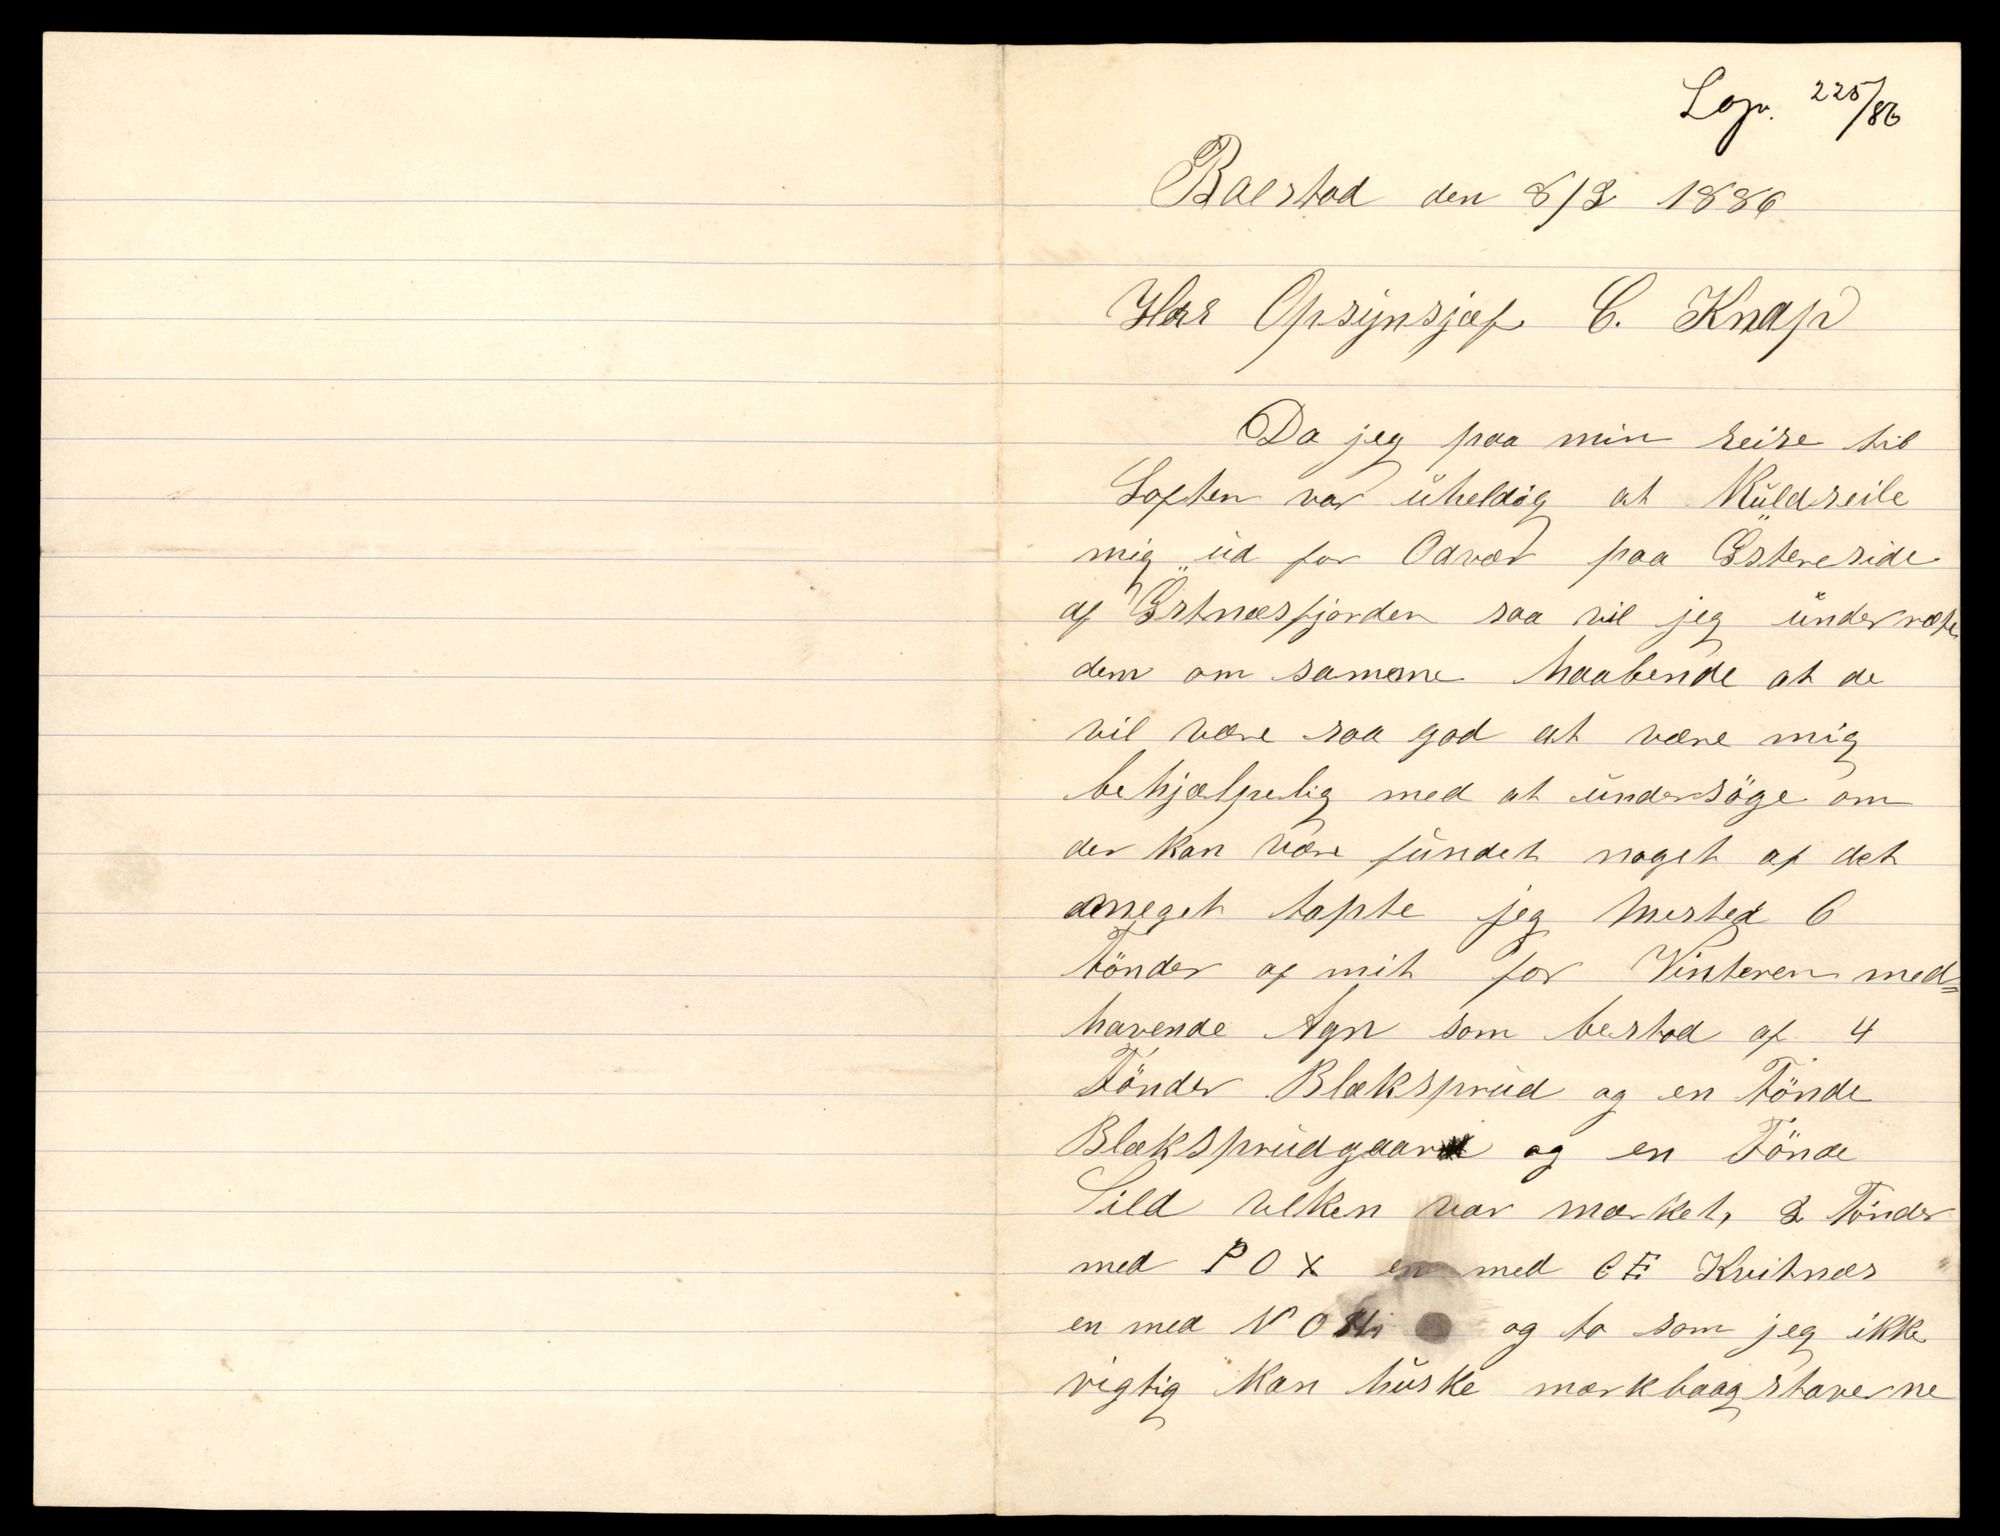 Lop. 225/86
Balstad den 8/2 1886
Herr Opsynsjæf C. Knap
Da jeg paa min reise til
Loften var uheldig at Kuldseile
mig ud for Odvær paa Östereside
af Östnæsfjorden saa vil jeg underrette
dem om samme haabende at de
vil være saa god at være mig
behjælpelig med at undersöge om
der kan være fundet noget af det
meget tapte jeg mested 6
Tönder af mit for Vinteren med=
havende Agn som bestod af 4
Tönder Blæksprud og en Tönde
Blæksprudgaar og en Tönde
Sild vlken var mærket, 2 Tönder
med P O X en med C E Kvitnæs
en med N O og to som jeg ikke
vigtig kan huske mærkbaagstaverne